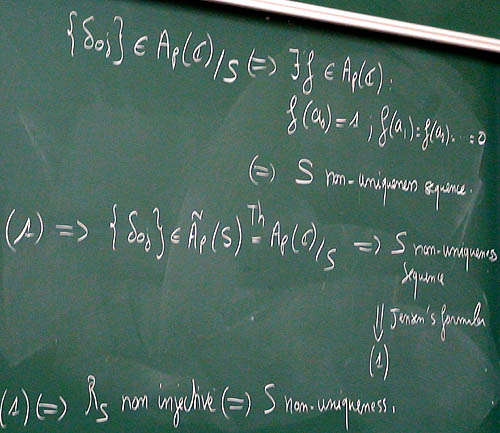 {δ₀ⱼ} ∈ Aₚ(ℂ)/S <=> ∃ f ∈ Aₚ(ℂ) :
f(a₀) = 1 ; f(a₁) = f(a₂) ... = 0
<=> S non-uniqueness sequence.
(1) => {δ₀ⱼ} ∈ Ãₚ(S) =ᵀʰ Aₚ(ℂ)/S => S non-uniqueness
sequence
⇓ Jensen's formula
(1)
(1) <=> R_S non injective <=> S non-uniqueness.